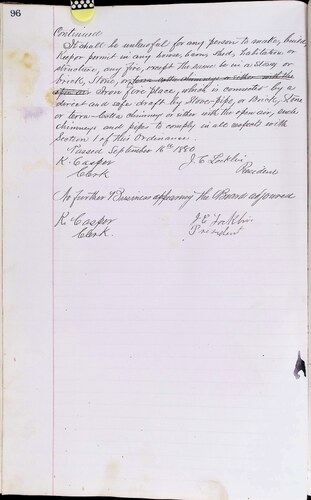 96
Continued
It shall be unlawful for any person to make, build,
Keep or permit in any house, barn, shed, habitation or
structure, any fire, except the same be in a Stove or
brick, Stone, or terra-cotta chimneys or either with the
open air Iron fire place, which is connected by a
direct and safe draft by Stove-pipe, or Brick, Stone
or terra-cotta chimney or either with the open air, such
chimneys and pipes to comply in all respects with
Section 1 of this Ordinance.
Passed September 16th 1880
K. Casper J. E. Locklin
Clerk President
No further Business appearing the Board adjourned
K. Casper J. E. Locklin
Clerk. President